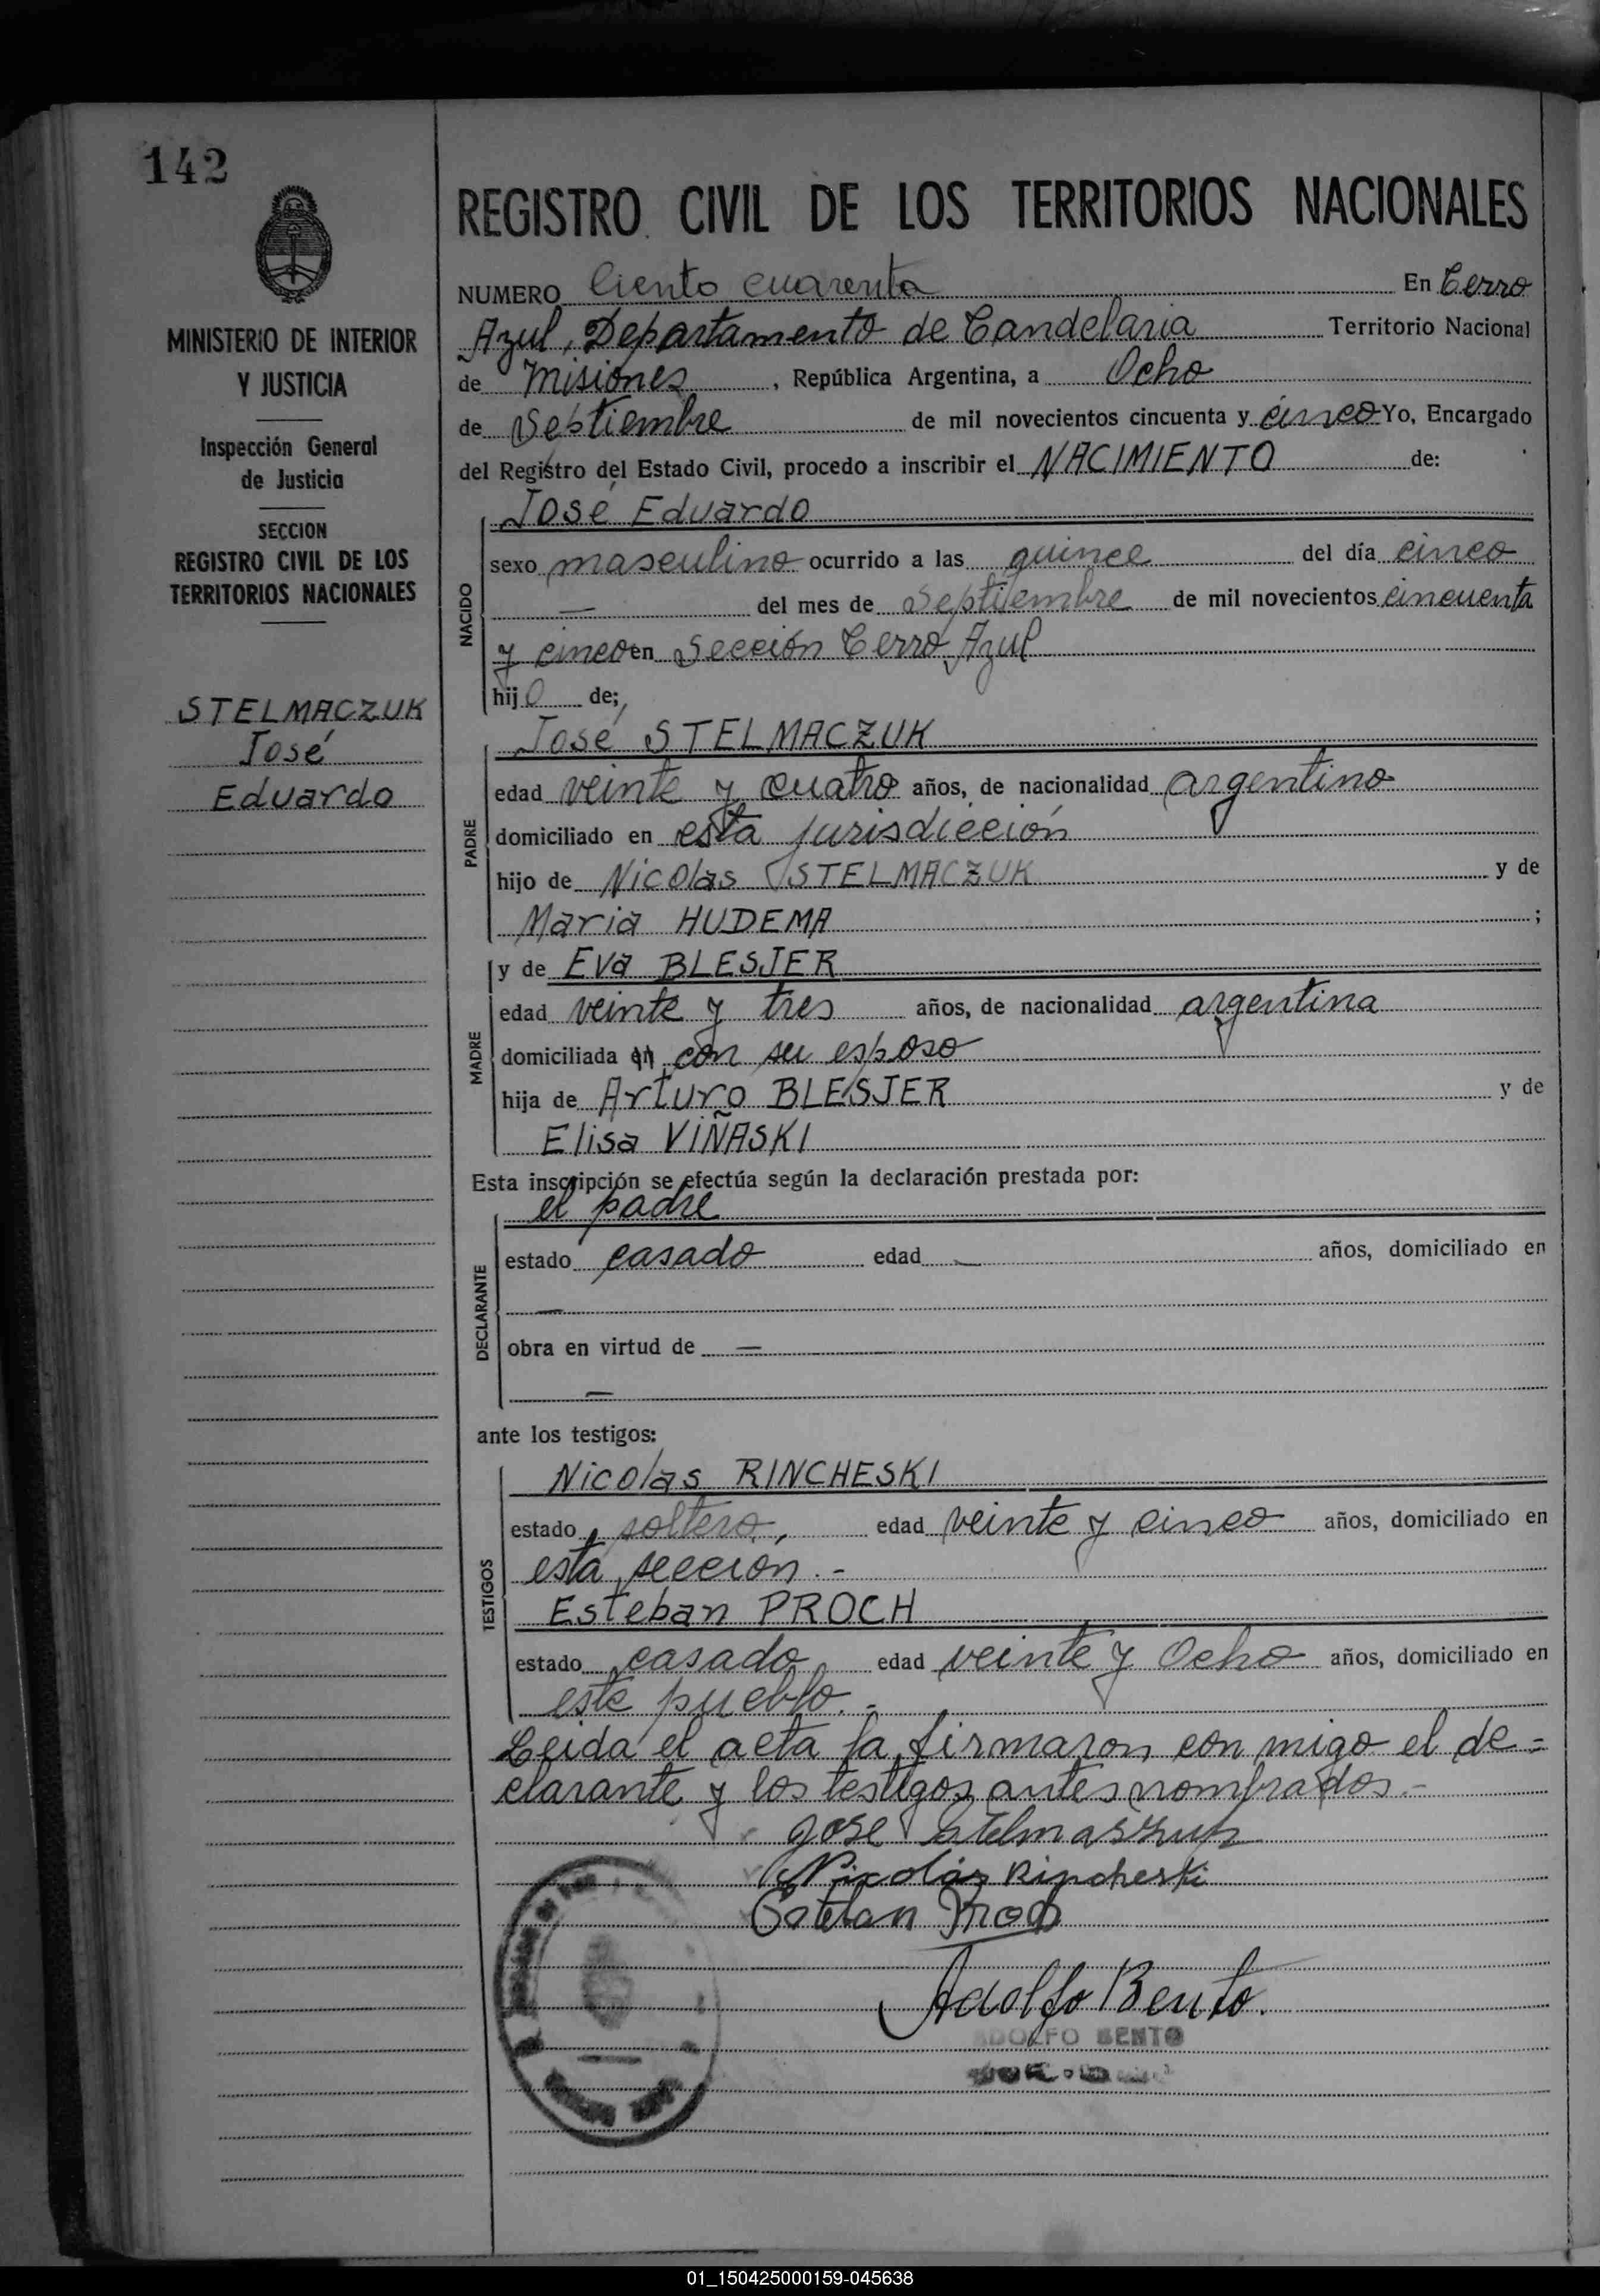 142
REGISTRO CIVIL DE LOS TERRITORIOS NACIONALES
MINISTERIO DE INTERIOR
Y JUSTICIA
Inspección General
de Justicia
SECCION
REGISTRO CIVIL DE LOS
TERRITORIOS NACIONALES
STELMACZUK
José
Eduardo
NUMERO Ciento cuarenta En Cerro
Azul, Departamento de Candelaria Territorio Nacional
de Misiones, República Argentina, a Ocho
de Septiembre de mil novecientos cincuenta y cinco Yo, Encargado
del Registro del Estado Civil, procedo a inscribir el NACIMIENTO de:
José Eduardo
NACIDO
sexo masculino ocurrido a las quince del día cinco
— del mes de Septiembre de mil novecientos cincuenta
y cinco en Sección Cerro Azul
hijo de;
José STELMACZUK
PADRE
edad veinte y cuatro años, de nacionalidad argentino
domiciliado en esta jurisdicción
hijo de Nicolas STELMACZUK y de
Maria HUDEMA ;
y de Eva BLESJER
MADRE
edad veinte y tres años, de nacionalidad argentina
domiciliada en con su esposo
hija de Arturo BLESJER y de
Elisa VIÑASKI
Esta inscripción se efectúa según la declaración prestada por:
el padre
DECLARANTE
estado casado edad — años, domiciliado en
—
obra en virtud de —
—
ante los testigos:
Nicolas RINCHESKI
TESTIGOS
estado soltero, edad veinte y cinco años, domiciliado en
esta seccion.-
Esteban PROCH
estado casado edad veinte y Ocho años, domiciliado en
este pueblo.-
Leida el acta la firmaron con migo el de=
clarante y los testigos antes nombrados.-
Jose Stelmaszuk
Nicolás Rincheski
Esteban Proch
Adolfo Bento.
ADOLFO BENTO
01_150425000159-045638